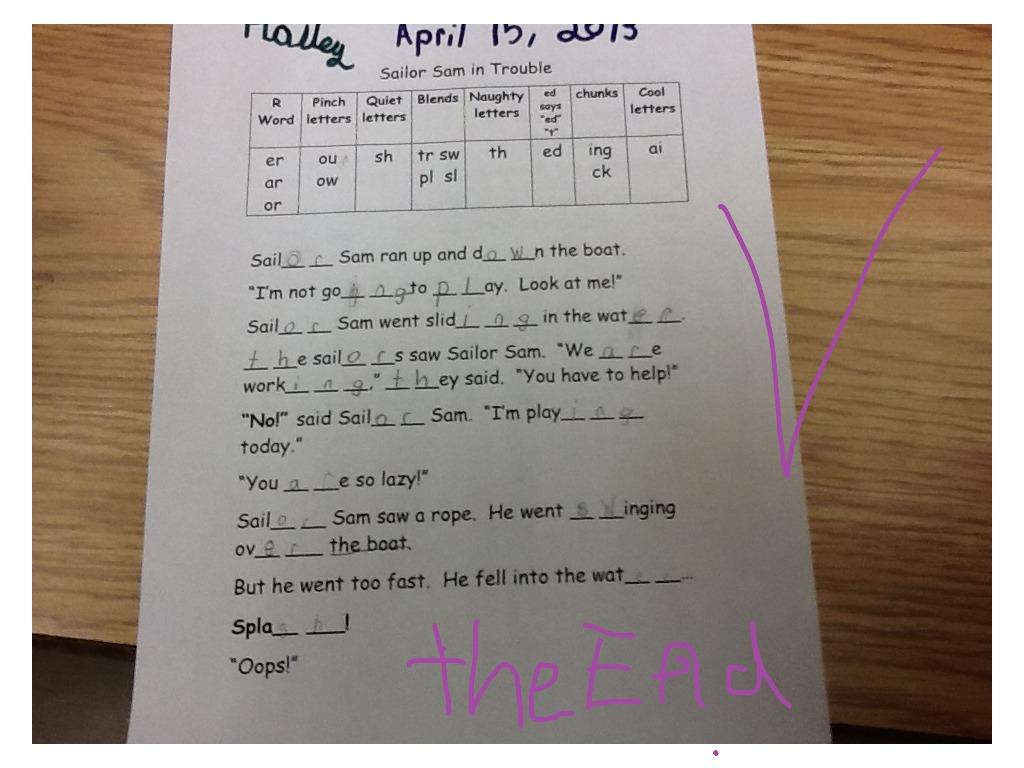 Halley April 15, 2013
Sailor Sam in Trouble
R Word Pinch letters Quiet letters Blends Naughty letters ed says "ed" "t" chunks Cool letters
er ar or ou ow sh tr sw pl sl th ed ing ck ai
Sailor Sam ran up and down the boat.
"I'm not going to play. Look at me!"
Sailor Sam went sliding in the water.
the sailors saw Sailor Sam. "We are
working," they said. "You have to help!"
"No!" said Sailor Sam. "I'm playing
today."
"You are so lazy!"
Sailor Sam saw a rope. He went swinging
over the boat.
But he went too fast. He fell into the wat__ __...
Splash!
"Oops!"
the End